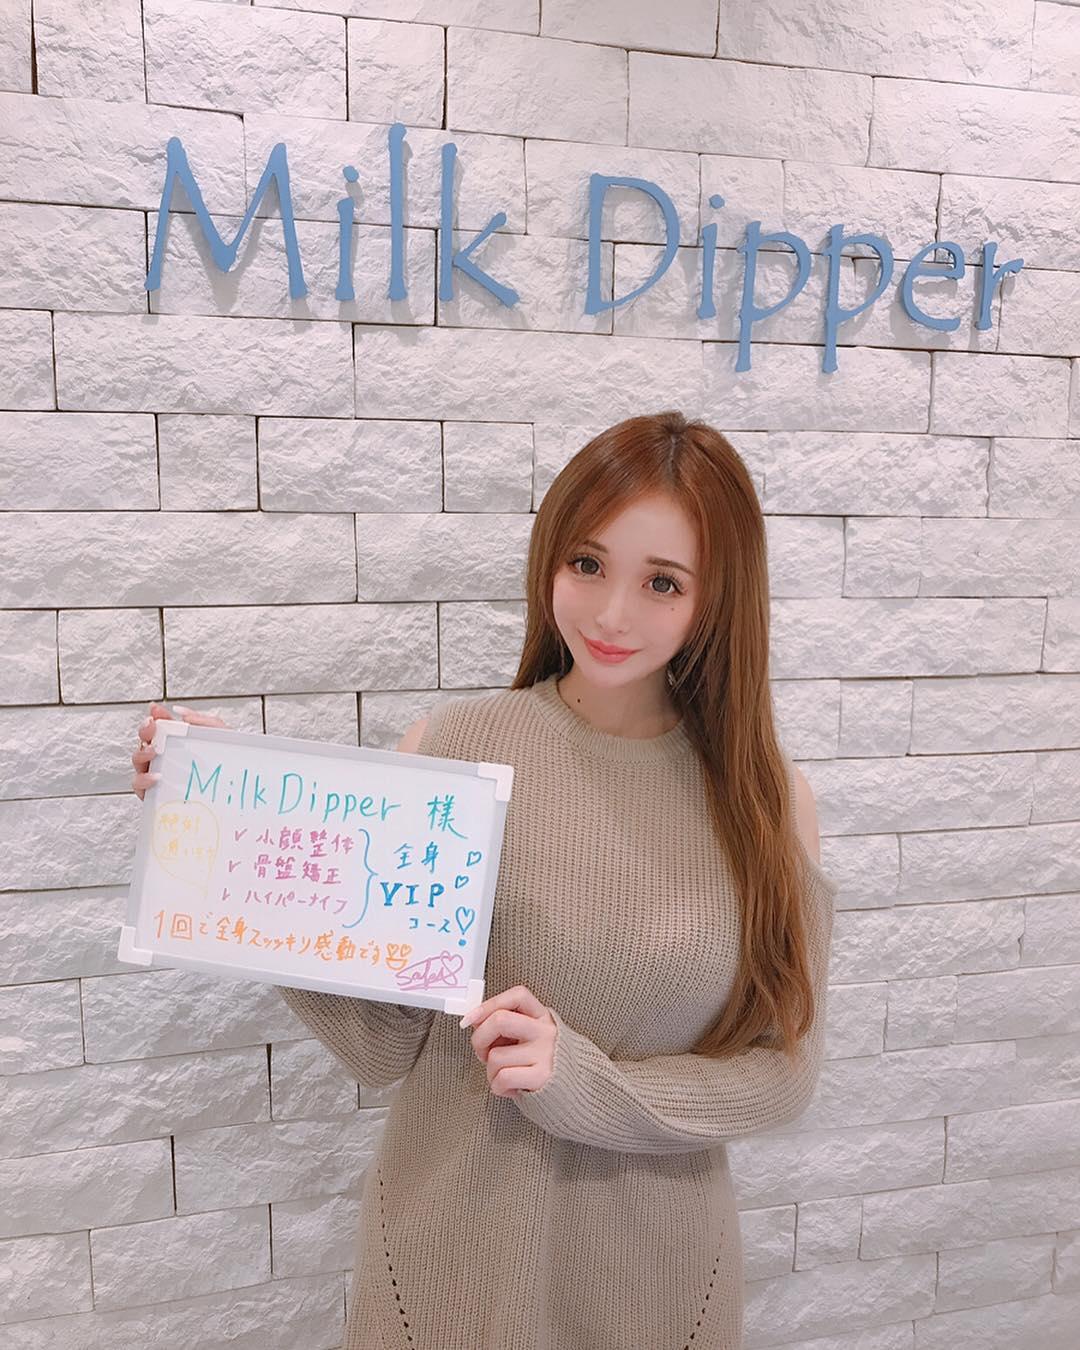 Milk Dipper
Milk Dipper 様
絶対
通います
✓ 小顔整体
✓ 骨盤矯正
✓ ハイパーナイフ
全身♡
VIP♡
コース♡
1回で全身スッキリ感動です